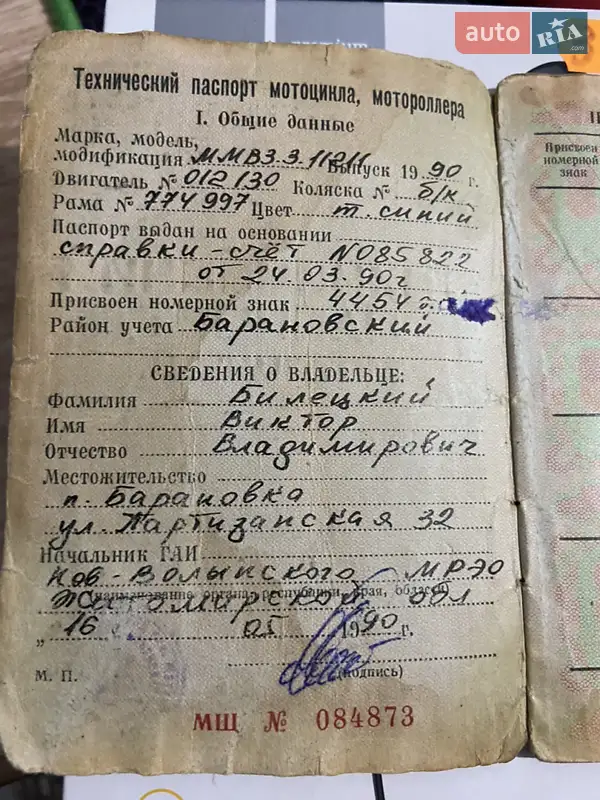 auto RIA .com
premium
Технический паспорт мотоцикла, мотороллера
I. Общие данные
Марка, модель,
модификация ММВЗ 3.11211 Выпуск 1990 г.
Двигатель № 012130 Коляска № б/к
Рама № 774997 Цвет т. синий
Паспорт выдан на основании
справки-счёт N085822
от 24.03.90г
Присвоен номерной знак 4454
Район учета Барановский
СВЕДЕНИЯ О ВЛАДЕЛЬЦЕ:
Фамилия Билецкий
Имя Виктор
Отчество Владимирович
Местожительство
п. Барановка
ул. Партизанская 32
Начальник ГАИ
Нов-Волынского МРЭО
(наименование органа, республики, края, области)
Житомирской обл
„16 05 1990 г.
(подпись)
М. П.
МЩ № 084873
Присвоен
номерной
знак